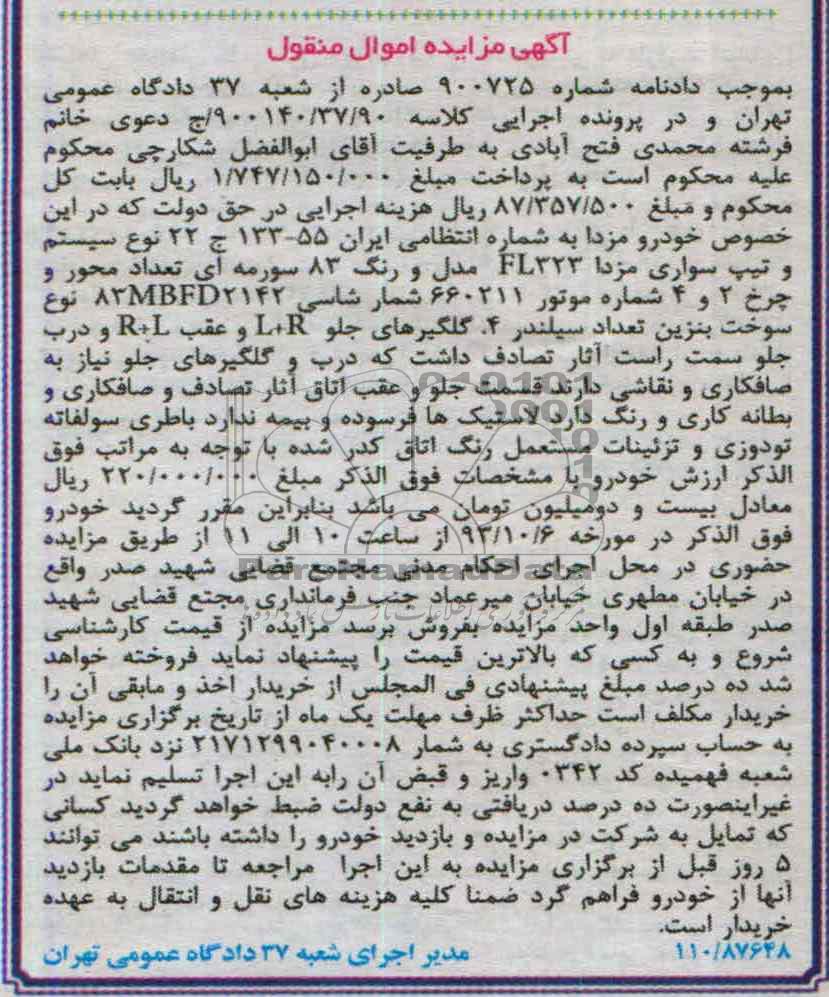 آگهی مزایده اموال منقول
بموجب دادنامه شماره ۹۰۰۷۲۵ صادره از شعبه ۳۷ دادگاه عمومی
تهران و در پرونده اجرایی کلاسه ۹۰۰۱۴۰/۳۷/۹۰/ج دعوی خانم
فرشته محمدی فتح آبادی به طرفیت آقای ابوالفضل شکارچی محکوم
علیه محکوم است به پرداخت مبلغ ۱/۷۴۷/۱۵۰/۰۰۰ ریال بابت کل
محکوم و مبلغ ۸۷/۳۵۷/۵۰۰ ریال هزینه اجرایی در حق دولت که در این
خصوص خودرو مزدا به شماره انتظامی ایران ۵۵-۱۳۳ ج ۲۲ نوع سیستم
و تیپ سواری مزدا FL۳۲۳ مدل و رنگ ۸۳ سورمه ای تعداد محور و
چرخ ۲ و ۴ شماره موتور ۶۶۰۲۱۱ شمار شاسی ۸۳MBFD۲۱۴۲ نوع
سوخت بنزین تعداد سیلندر ۴. گلگیرهای جلو L+R و عقب R+L و درب
جلو سمت راست آثار تصادف داشت که درب و گلگیرهای جلو نیاز به
صافکاری و نقاشی دارند قسمت جلو و عقب اتاق آثار تصادف و صافکاری و
بطانه کاری و رنگ دارد لاستیک ها فرسوده و بیمه ندارد باطری سولفاته
تودوزی و تزئینات مستعمل رنگ اتاق کدر شده با توجه به مراتب فوق
الذکر ارزش خودرو با مشخصات فوق الذکر مبلغ ۲۲۰/۰۰۰/۰۰۰ ریال
معادل بیست و دومیلیون تومان می باشد بنابراین مقرر گردید خودرو
فوق الذکر در مورخه ۹۳/۱۰/۶ از ساعت ۱۰ الی ۱۱ از طریق مزایده
حضوری در محل اجرای احکام مدنی مجتمع قضایی شهید صدر واقع
در خیابان مطهری خیابان میرعماد جنب فرمانداری مجتع قضایی شهید
صدر طبقه اول واحد مزایده بفروش برسد مزایده از قیمت کارشناسی
شروع و به کسی که بالاترین قیمت را پیشنهاد نماید فروخته خواهد
شد ده درصد مبلغ پیشنهادی فی المجلس از خریدار اخذ و مابقی آن را
خریدار مکلف است حداکثر ظرف مهلت یک ماه از تاریخ برگزاری مزایده
به حساب سپرده دادگستری به شمار ۲۱۷۱۲۹۹۰۴۰۰۰۸ نزد بانک ملی
شعبه فهمیده کد ۰۳۴۲ واریز و قبض آن رابه این اجرا تسلیم نماید در
غیراینصورت ده درصد دریافتی به نفع دولت ضبط خواهد گردید کسانی
که تمایل به شرکت در مزایده و بازدید خودرو را داشته باشند می توانند
۵ روز قبل از برگزاری مزایده به این اجرا مراجعه تا مقدمات بازدید
آنها از خودرو فراهم گرد ضمنا کلیه هزینه های نقل و انتقال به عهده
خریدار است.
۱۱۰/۸۷۶۴۸ مدیر اجرای شعبه ۳۷ دادگاه عمومی تهران
ParsNamadData